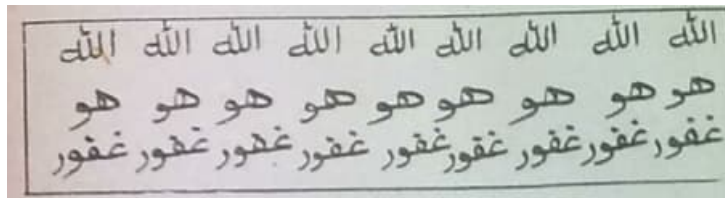 الله الله الله الله الله الله الله الله الله
هو هو هو هو هو هو هو هو هو
غفور غفور غفور غفور غفور غفور غفور غفور غفور